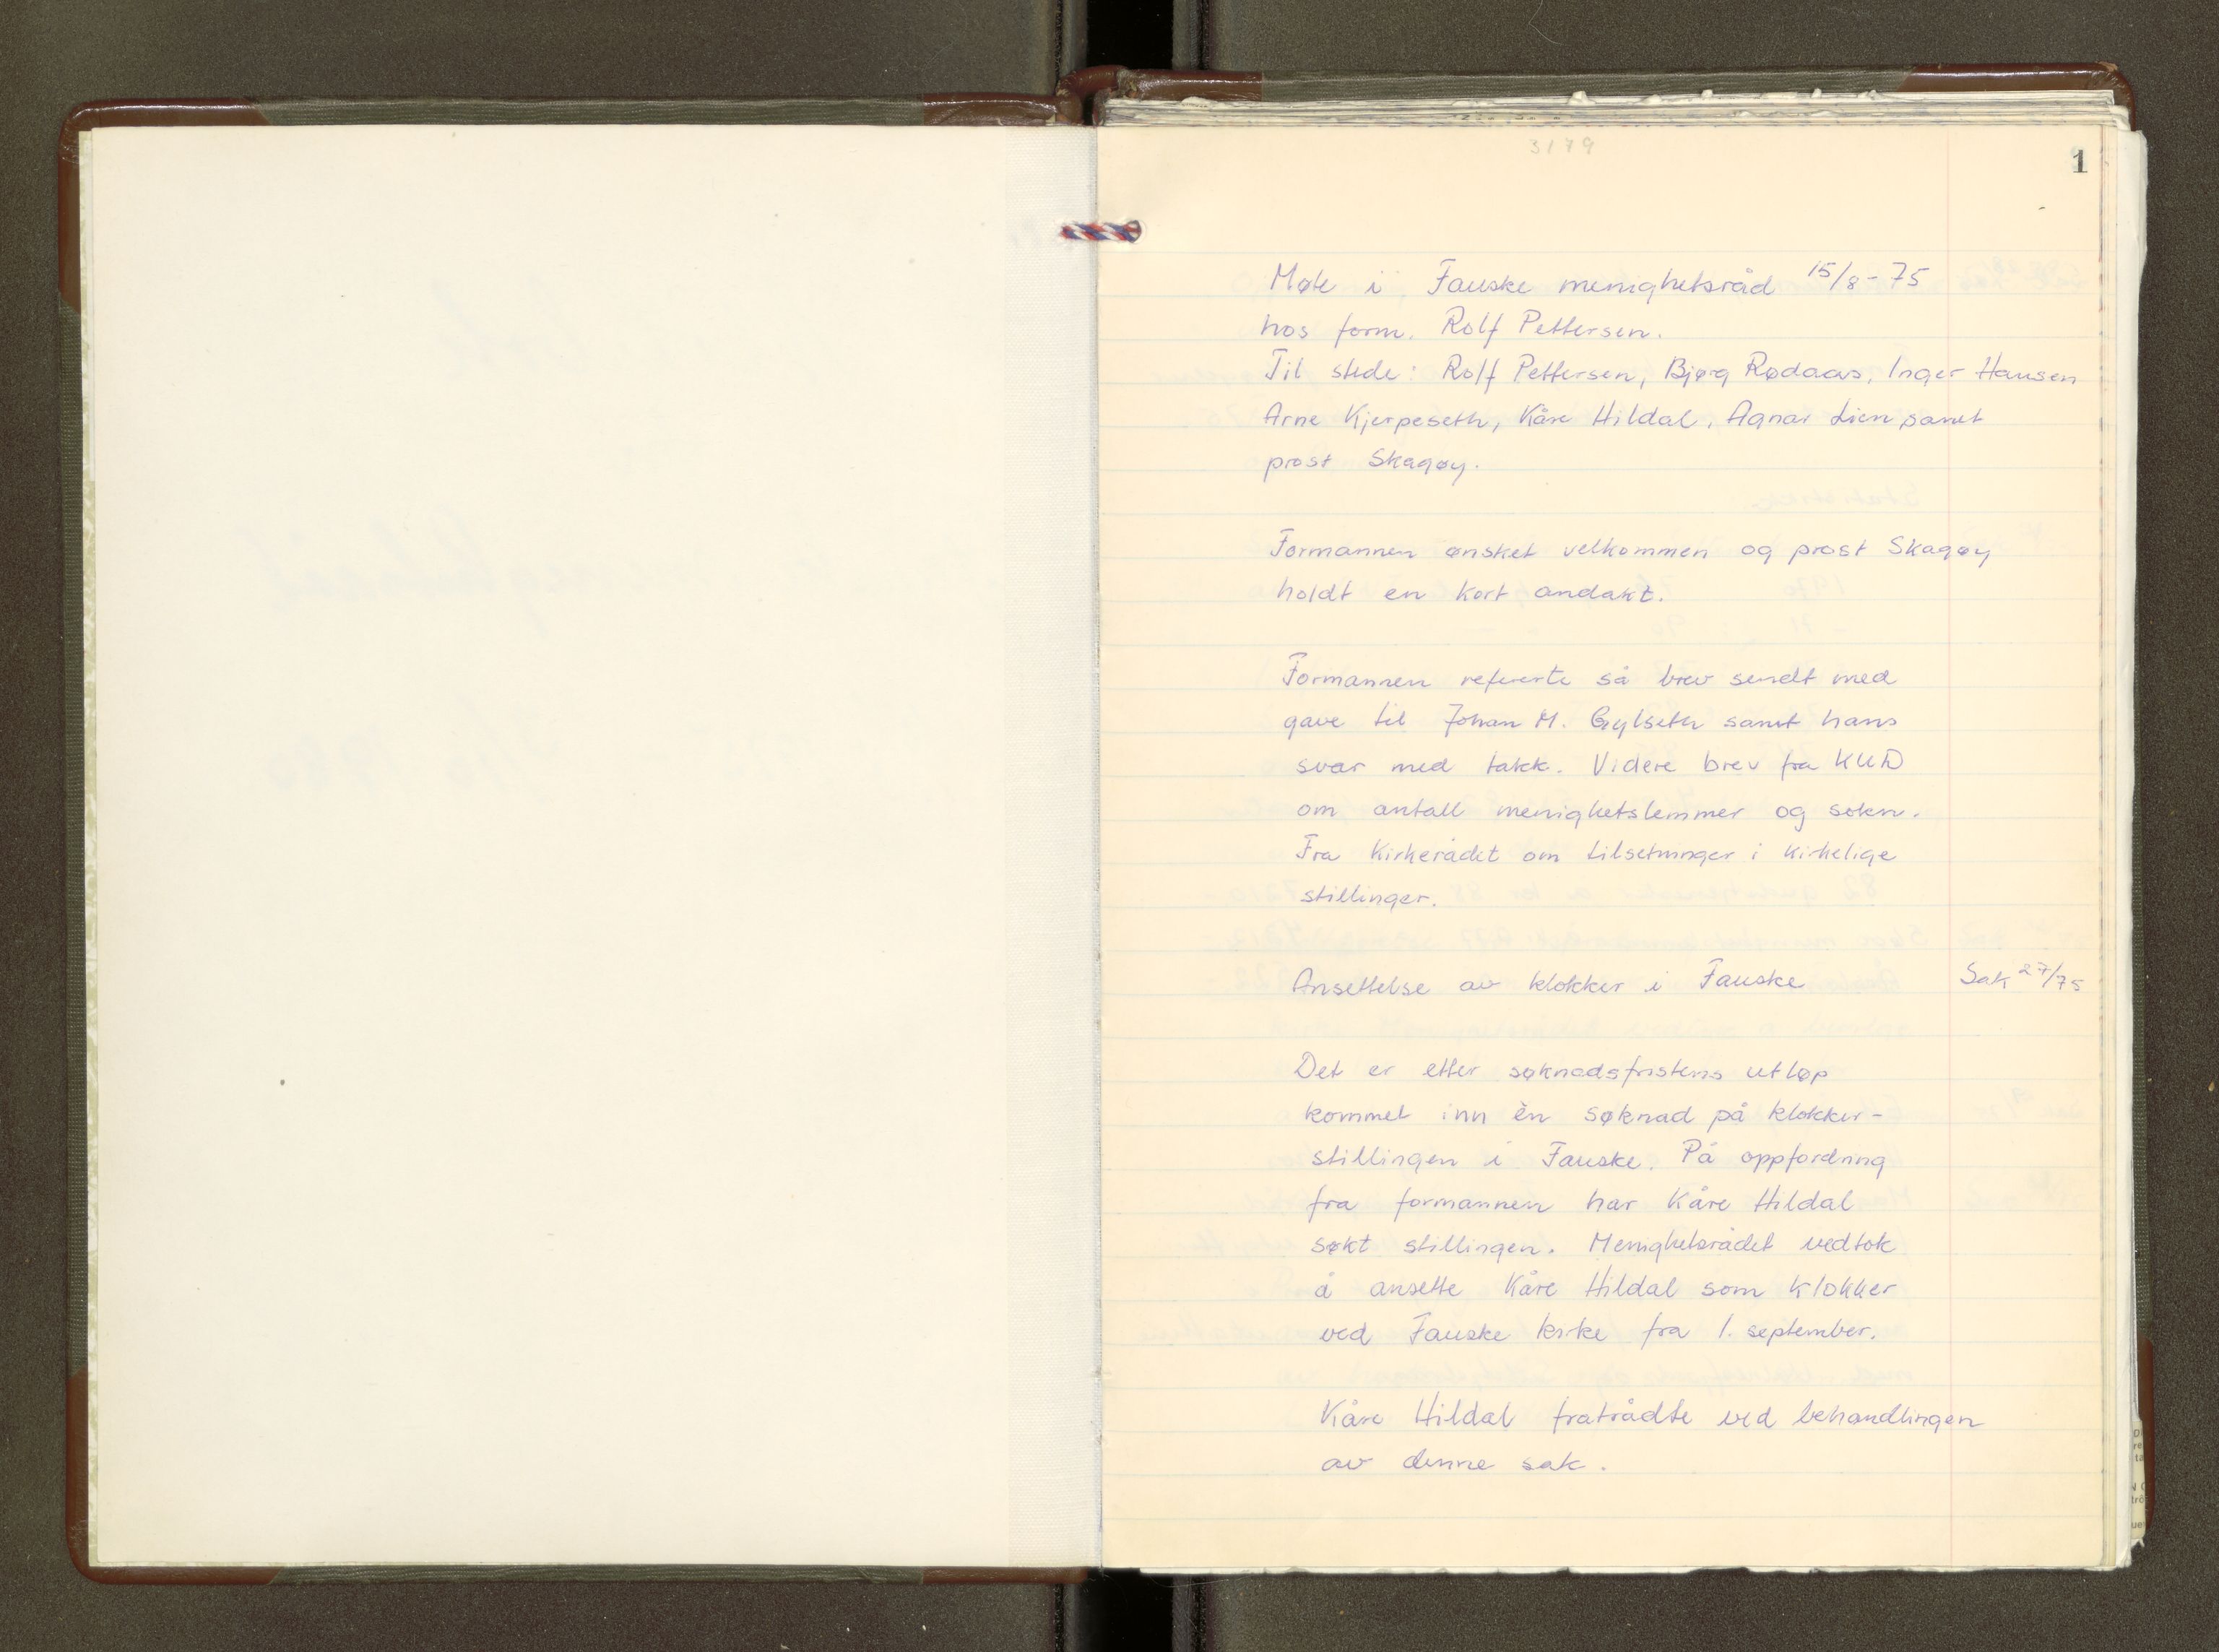 3179
1
Møte i Fauske menighetsråd 15/8-75
hos form. Rolf Pettersen.
Til stede: Rolf Pettersen, Bjørg Rødaas, Inger Hansen
Arne Kjerpeseth, Kåre Hildal, Agnar Lien samt
prost Skagøy.
Formannen ønsket velkommen og prost Skagøy
holdt en kort andakt.
Formannen refererte så brev sendt med
gave til Johan M. Gylseth samt hans
svar med takk. Videre brev fra KUD
om antall menighetslemmer og sokn.
Fra Kirkerådet om tilsetninger i kirkelige
stillinger.
Ansettelse av klokker i Fauske Sak 27/75
Det er etter søknadsfristens utløp
kommet inn èn søknad på klokker-
stillingen i Fauske. På oppfordring
fra formannen har Kåre Hildal
søkt stillingen. Menighetsrådet vedtok
å ansette Kåre Hildal som klokker
ved Fauske kirke fra 1. september.
Kåre Hildal fratrådte ved behandlingen
av denne sak.